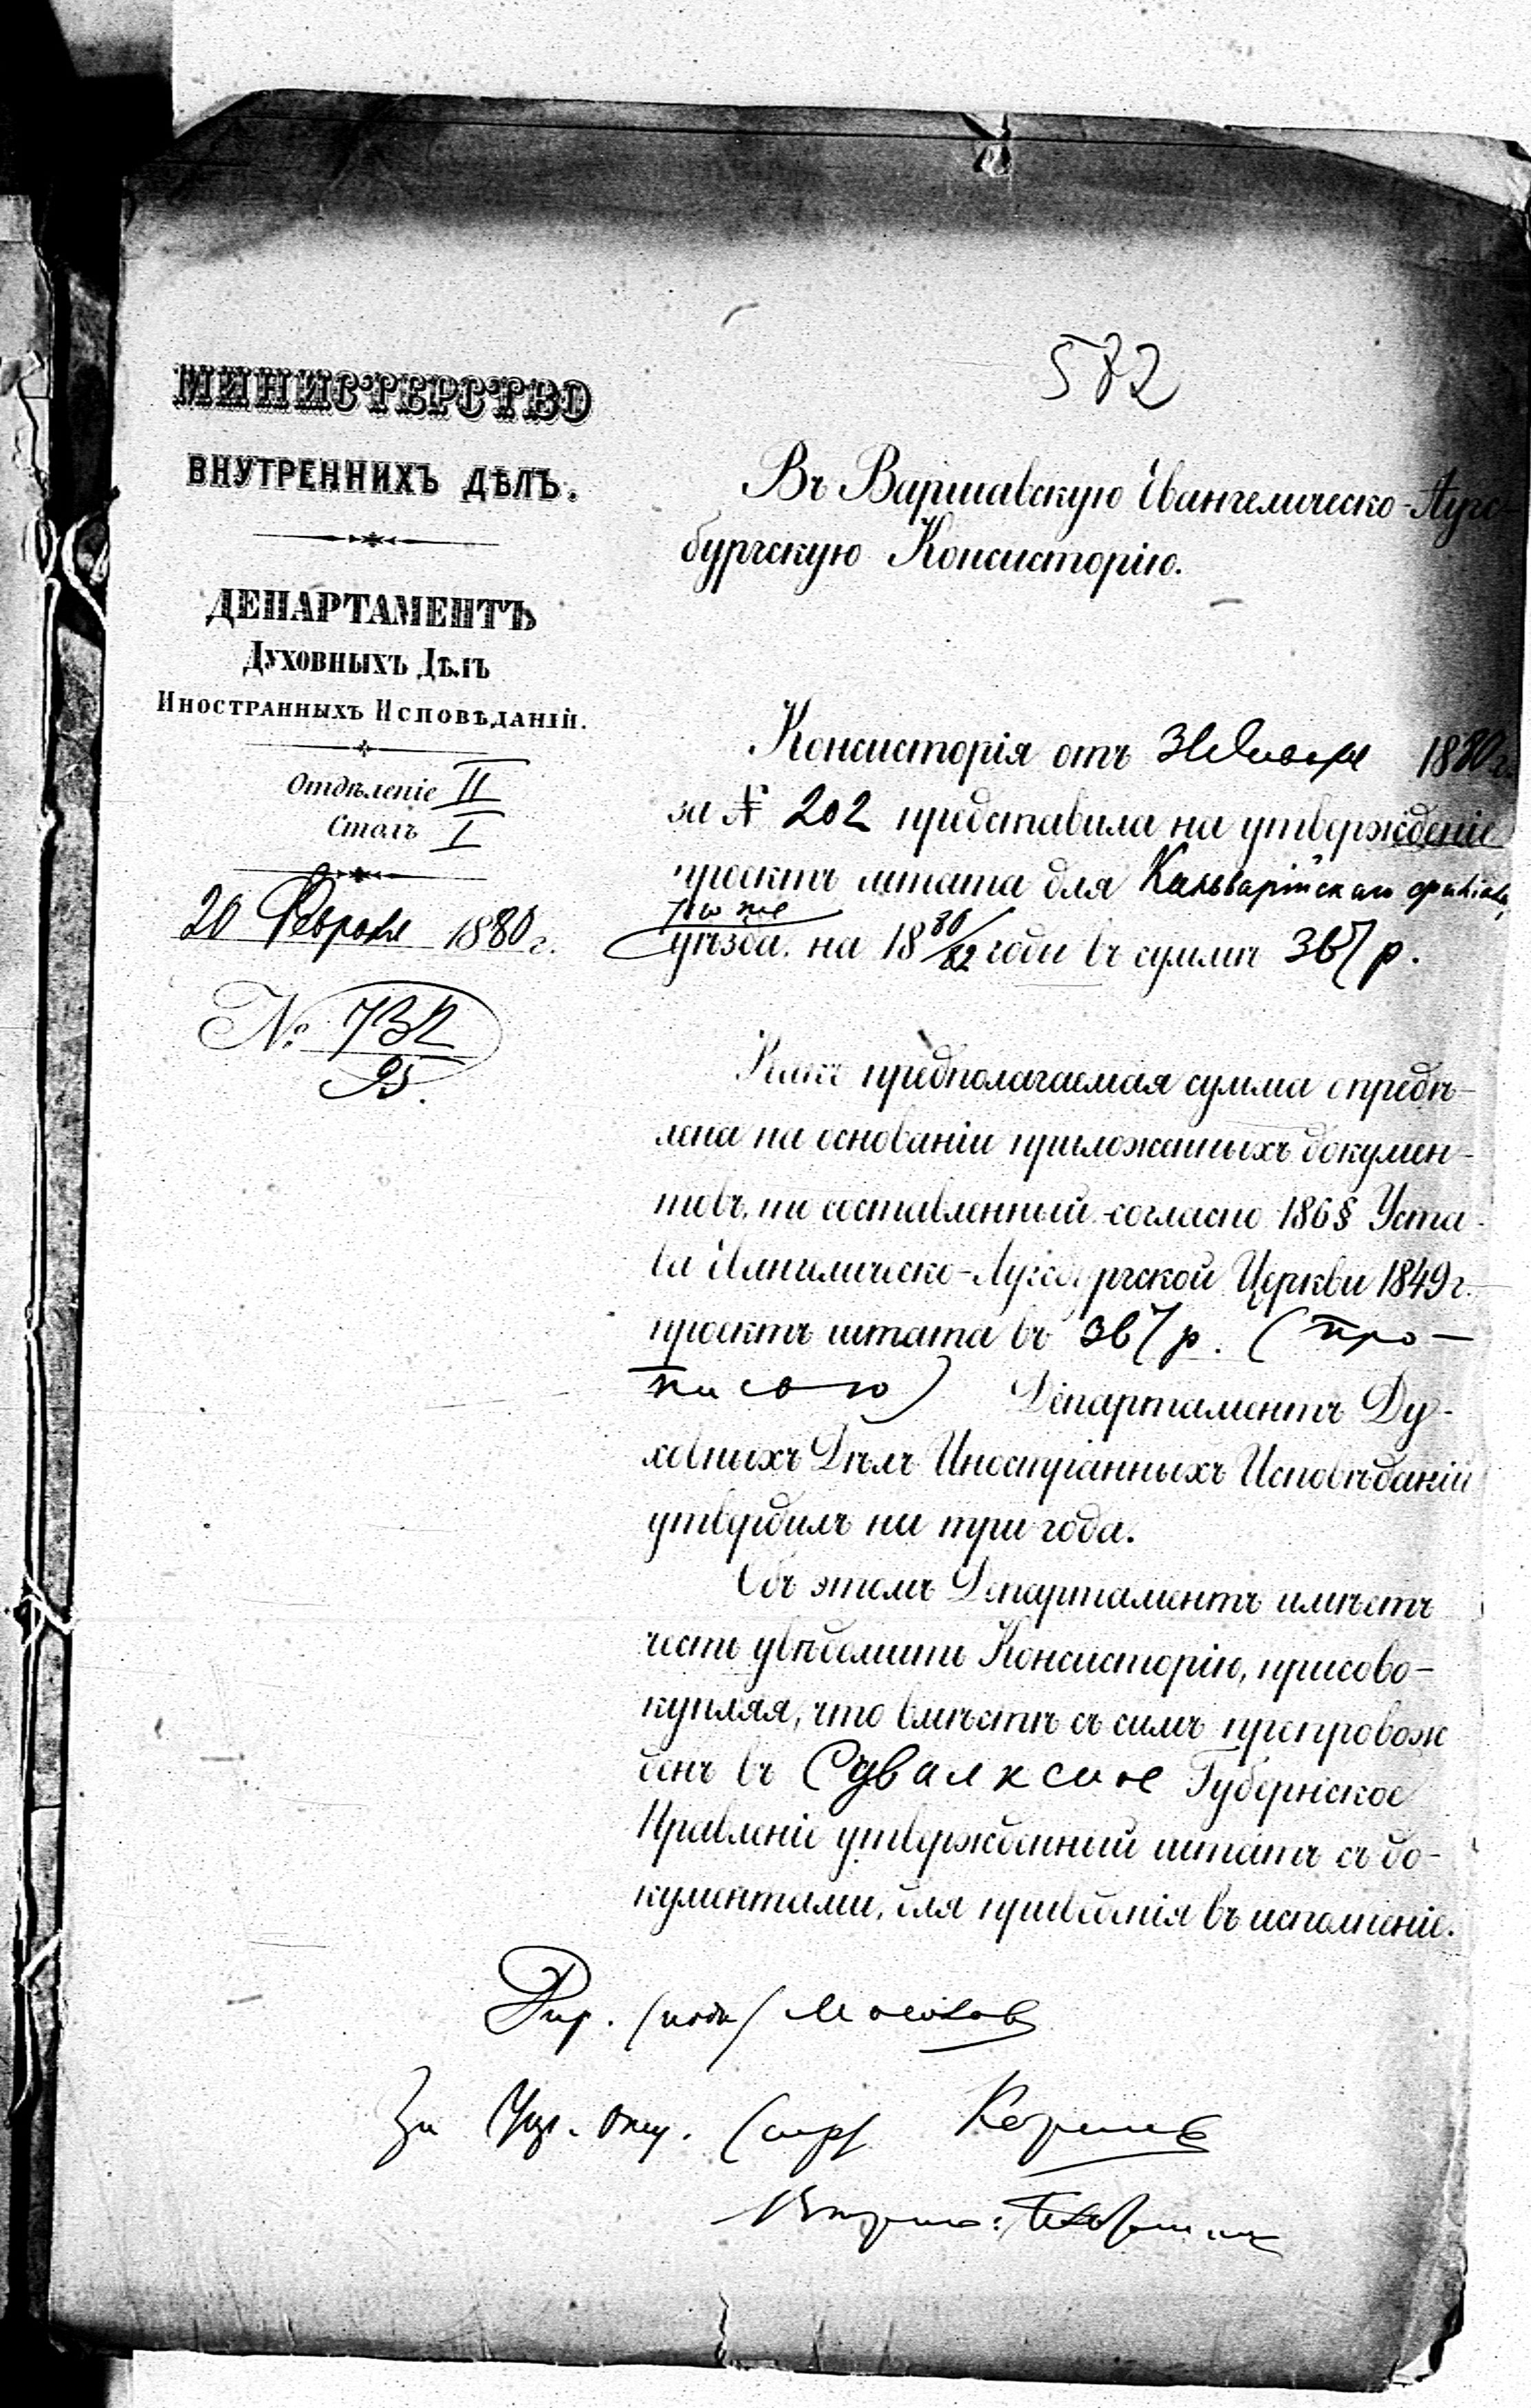 582
МИНИСТЕРСТВО
ВНУТРЕННИХЪ ДѢЛЪ.
ДЕПАРТАМЕНТЪ
Духовныхъ Дѣлъ
Иностранныхъ Исповѣданій.
Отдѣленіе II
Столъ I
20 Февраля 1880 г.
№ 732
95.
Въ Варшавскую Евангелическо-Аугс
бургскую Консисторію.
Консисторія отъ Января 1880 г.
за № 202 представила на утвержденіе
проектъ штата для Кальварійскаго
того же
уѣзда. на 18 80/82 годы въ суммѣ 367 р.
Какъ предполагаемая сумма опредѣ-
лена на основаніи приложенныхъ докумен-
товъ, то составленный согласно 186 § Уста-
ва Евангелическо-Аугсбургской Церкви 1849 г.
проектъ штата въ 367 р. (про-
писью) Департаментъ Ду-
ховныхъ Дѣлъ Иностранныхъ Исповѣданій
утвердилъ на три года.
Объ этомъ Департаментъ имѣетъ
честь увѣдомить Консисторію, присово-
купляя, что вмѣстѣ съ симъ препровож
денъ въ Сувалкское Губернское
Правленіе утвержденный штатъ съ до-
кументами, для приведенія въ исполненіе.
Дир. (подп) Мосолов
За